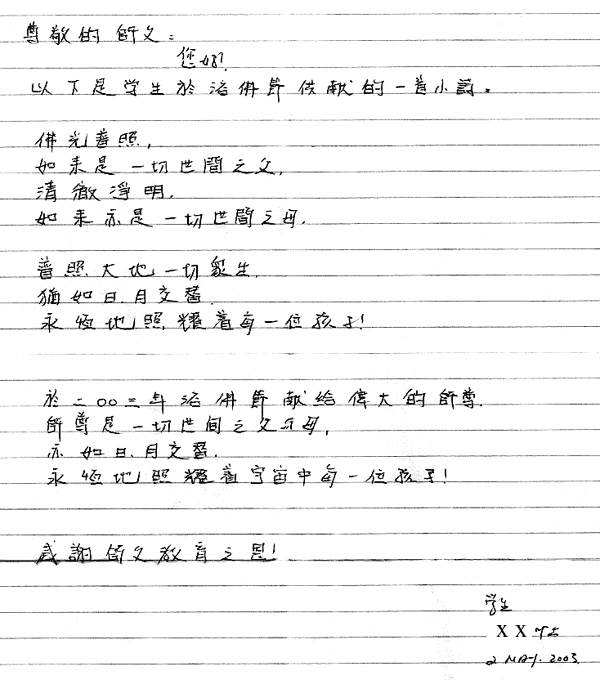 尊敬的師父：
您好！
以下是学生於浴佛節供献的一首小詩。
佛光普照，
如来是一切世間之父，
清徹淨明，
如来亦是一切世間之母，
普照大地一切衆生，
猶如日月交替，
永恆地照耀着每一位孩子！
於二00三年浴佛節献給偉大的師尊，
師尊是一切世间之父母，
亦如日月交替，
永恆地照耀着宇宙中每一位孩子！
感謝師父教育之恩！
学生
X X
2 MAY. 2003